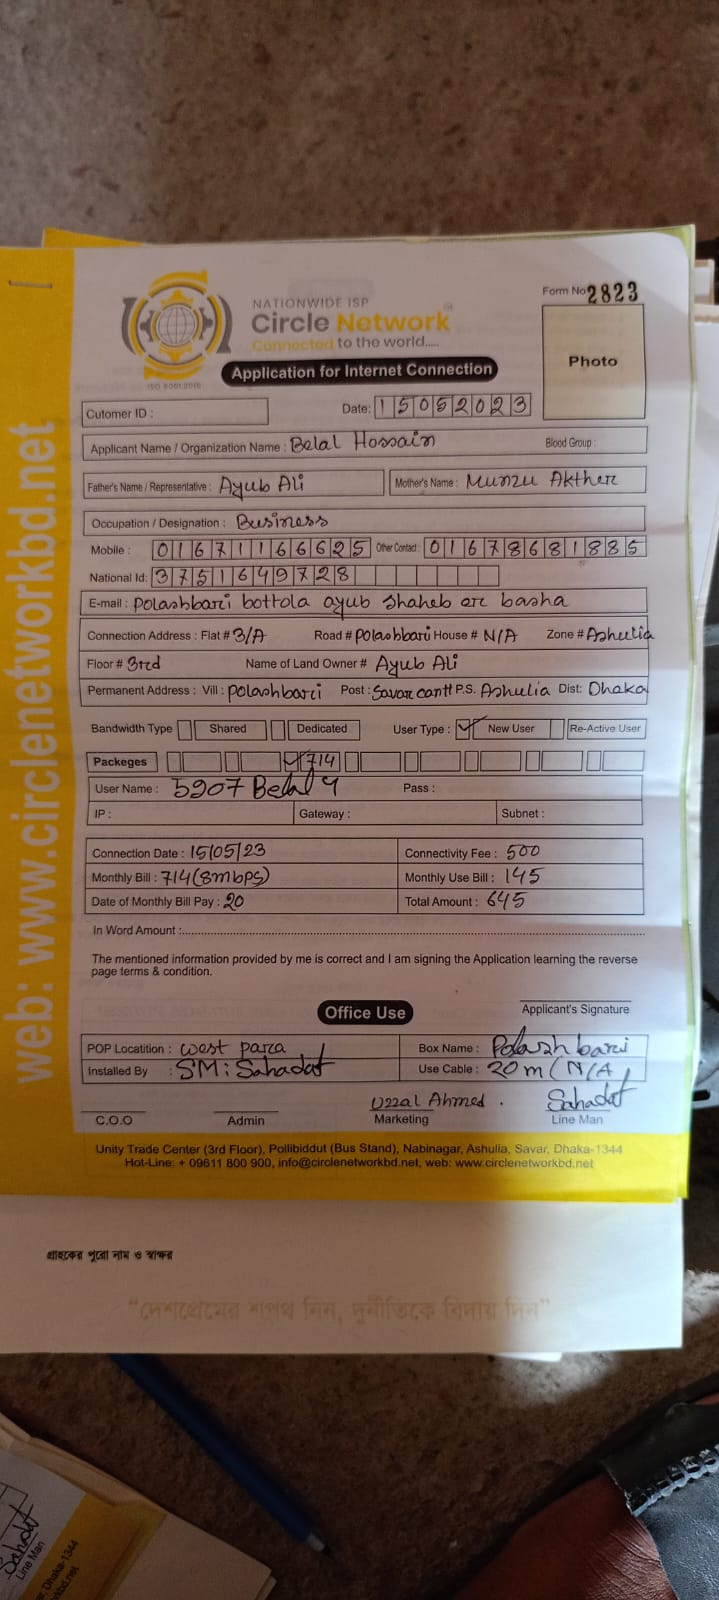 NATIONWIDE ISP
Circle Network
Connected to the world.....
ISO 9001:2015
Form No 2823
Photo
Application for Internet Connection
Cutomer ID : Date: 15052023
Applicant Name / Organization Name : Belal Hossain Blood Group :
Father's Name / Representative : Ayub Ali Mother's Name : Munzu Akther
Occupation / Designation : Business
Mobile : 01671166625 Other Contact : 01678681885
National Id: 3751649728
E-mail : polashbari bottola ayub shaheb er basha
Connection Address : Flat # 3/A Road # polashbari House # N/A Zone # Ashulia
Floor # 3rd Name of Land Owner # Ayub Ali
Permanent Address : Vill : polashbari Post : Savar cantt P.S. Ashulia Dist: Dhaka
Bandwidth Type Shared Dedicated User Type : New User Re-Active User
Packeges 714
User Name : 5907 Belal 4 Pass :
IP : Gateway : Subnet :
Connection Date : 15/05/23 Connectivity Fee : 500
Monthly Bill : 714(8mbps) Monthly Use Bill : 145
Date of Monthly Bill Pay : 20 Total Amount : 645
In Word Amount :
The mentioned information provided by me is correct and I am signing the Application learning the reverse
page terms & condition.
Applicant's Signature
Office Use
POP Locatition : west para Box Name : Polash bari
Installed By : SM : Sahadat Use Cable : 20m/N/A
Uzzal Ahmed . Sahadat
C.O.O Admin Marketing Line Man
Unity Trade Center (3rd Floor), Pollibiddut (Bus Stand), Nabinagar, Ashulia, Savar, Dhaka-1344
Hot-Line: + 09611 800 900, info@circlenetworkbd.net, web: www.circlenetworkbd.net
web: www.circlenetworkbd.net
গ্রাহকের পুরো নাম ও স্বাক্ষর
“দেশপ্রেমের শপথ নিন, দুর্নীতিকে বিদায় দিন”
Sahadat
Line Man
Dhaka-1344